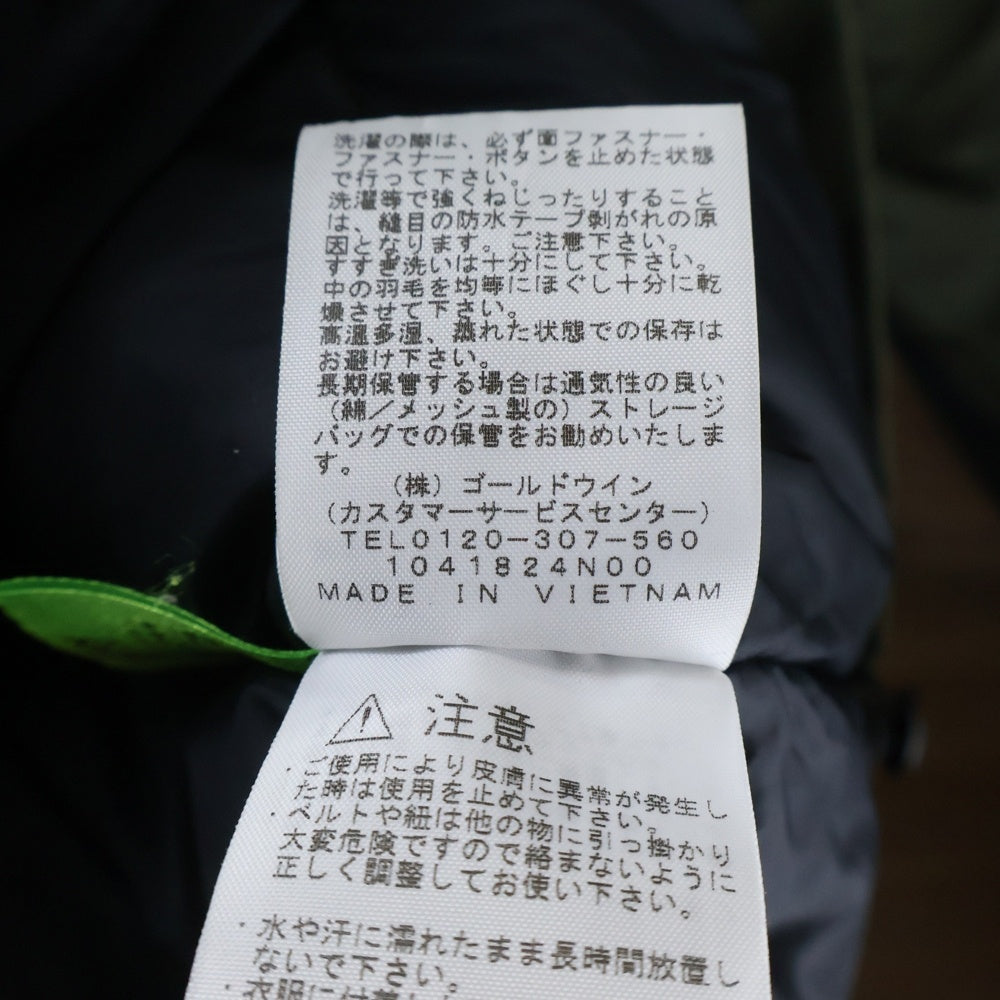 洗濯の際は、必ず面ファスナー・
ファスナー・ボタンを止めた状態
で行って下さい。
洗濯等で強くねじったりすること
は、縫目の防水テープ剥がれの原
因となります。ご注意下さい。
すすぎ洗いは十分にして下さい。
中の羽毛を均等にほぐし十分に乾
燥させて下さい。
高温多湿、蒸れた状態での保存は
お避け下さい。
長期保管する場合は通気性の良い
（綿／メッシュ製の）ストレージ
バッグでの保管をお勧めいたしま
す。
（株）ゴールドウイン
（カスタマーサービスセンター）
TEL0120−307−560
1041824N00
MADE IN VIETNAM
注意
・ご使用により皮膚に異常が発生し
た時は使用を止めて下さい。
・ベルトや紐は他の物に引っ掛かり
大変危険ですので絡まないように
正しく調整してお使い下さい。
・水や汗に濡れたまま長時間放置し
ないで下さい。
・衣服に付着し